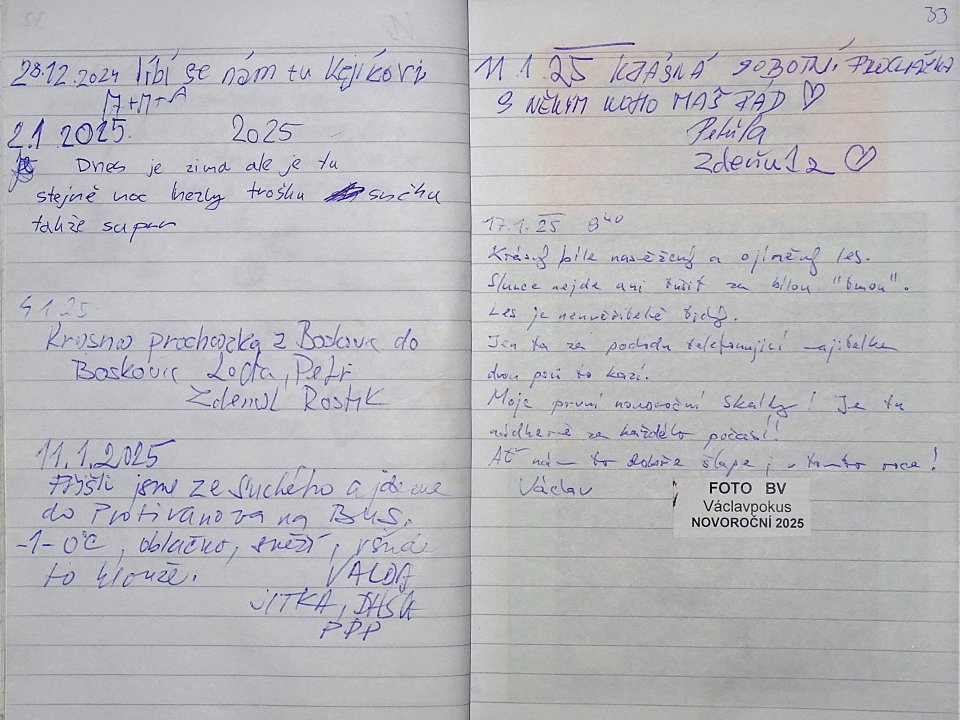 28.12.2024 líbí se nám tu Kejíkovi
M+M+A
2.1 2025. 2025
Dnes je zima ale je tu
stejně moc hezky trošku sucha
takže super
4.1.25
Krásná procházka z Boskovic do
Boskovic Petr
Zdeněk Rostík
11.1.2025
Přišli jsme ze Suchého a jdeme
do Protivanova na BUS.
-1-0°C, oblačno, sněží, všude
to klouže. VALDA
JITKA, DÁŠA
PPP
33
11.1.25 KRÁSNÁ SOBOTNÍ PROCHÁZKA
S NĚKÝM KOHO MÁŠ RÁD ♡
Zdeňula ♡
17.1.25 9⁴⁰
Krásný bíle zasněžený a ojíněný les.
Slunce nejde ani tušit za bílou "tmou".
Les je neuvěřitelně tichý.
Jen ta za pochodu telefonující majitelka
dvou psů to kazí.
Moje první novoroční Skalky! Je tu
nádherně za každého počasí!
Ať nám to dobře šlape i v tomto roce!
Václav
FOTO BV
Václavpokus
NOVOROČNÍ 2025